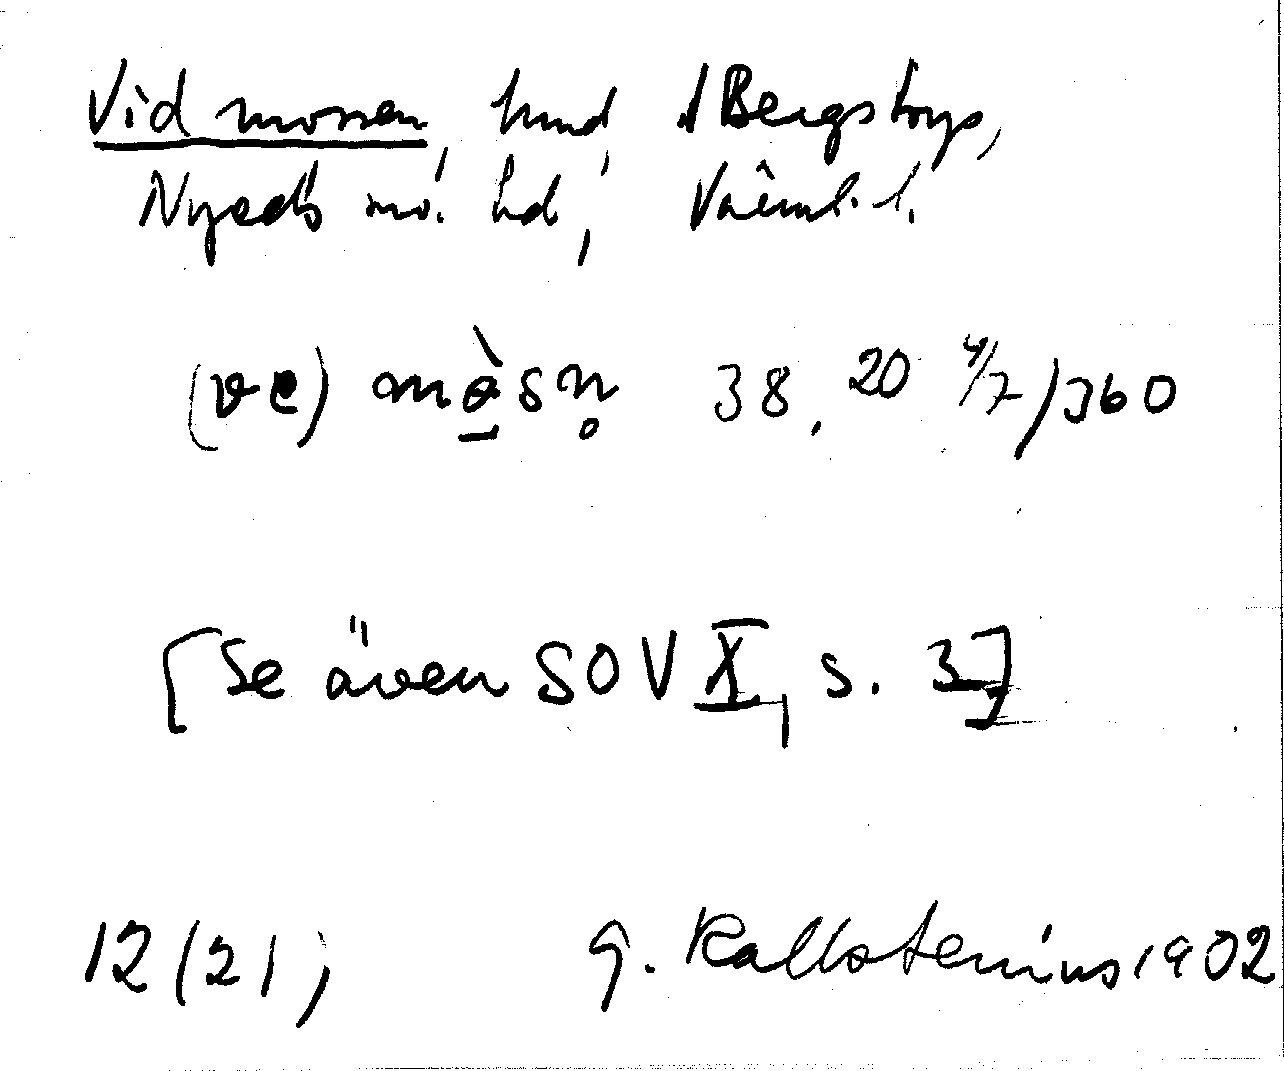 Vid mossen, hmd, Bergstorp,
Nyeds hd, Värml. l.
(ve) mòsn̥ 38, 20 4/7/360
[Se även SOV X, s. 3]
12(21) G. Kallstenius 1902